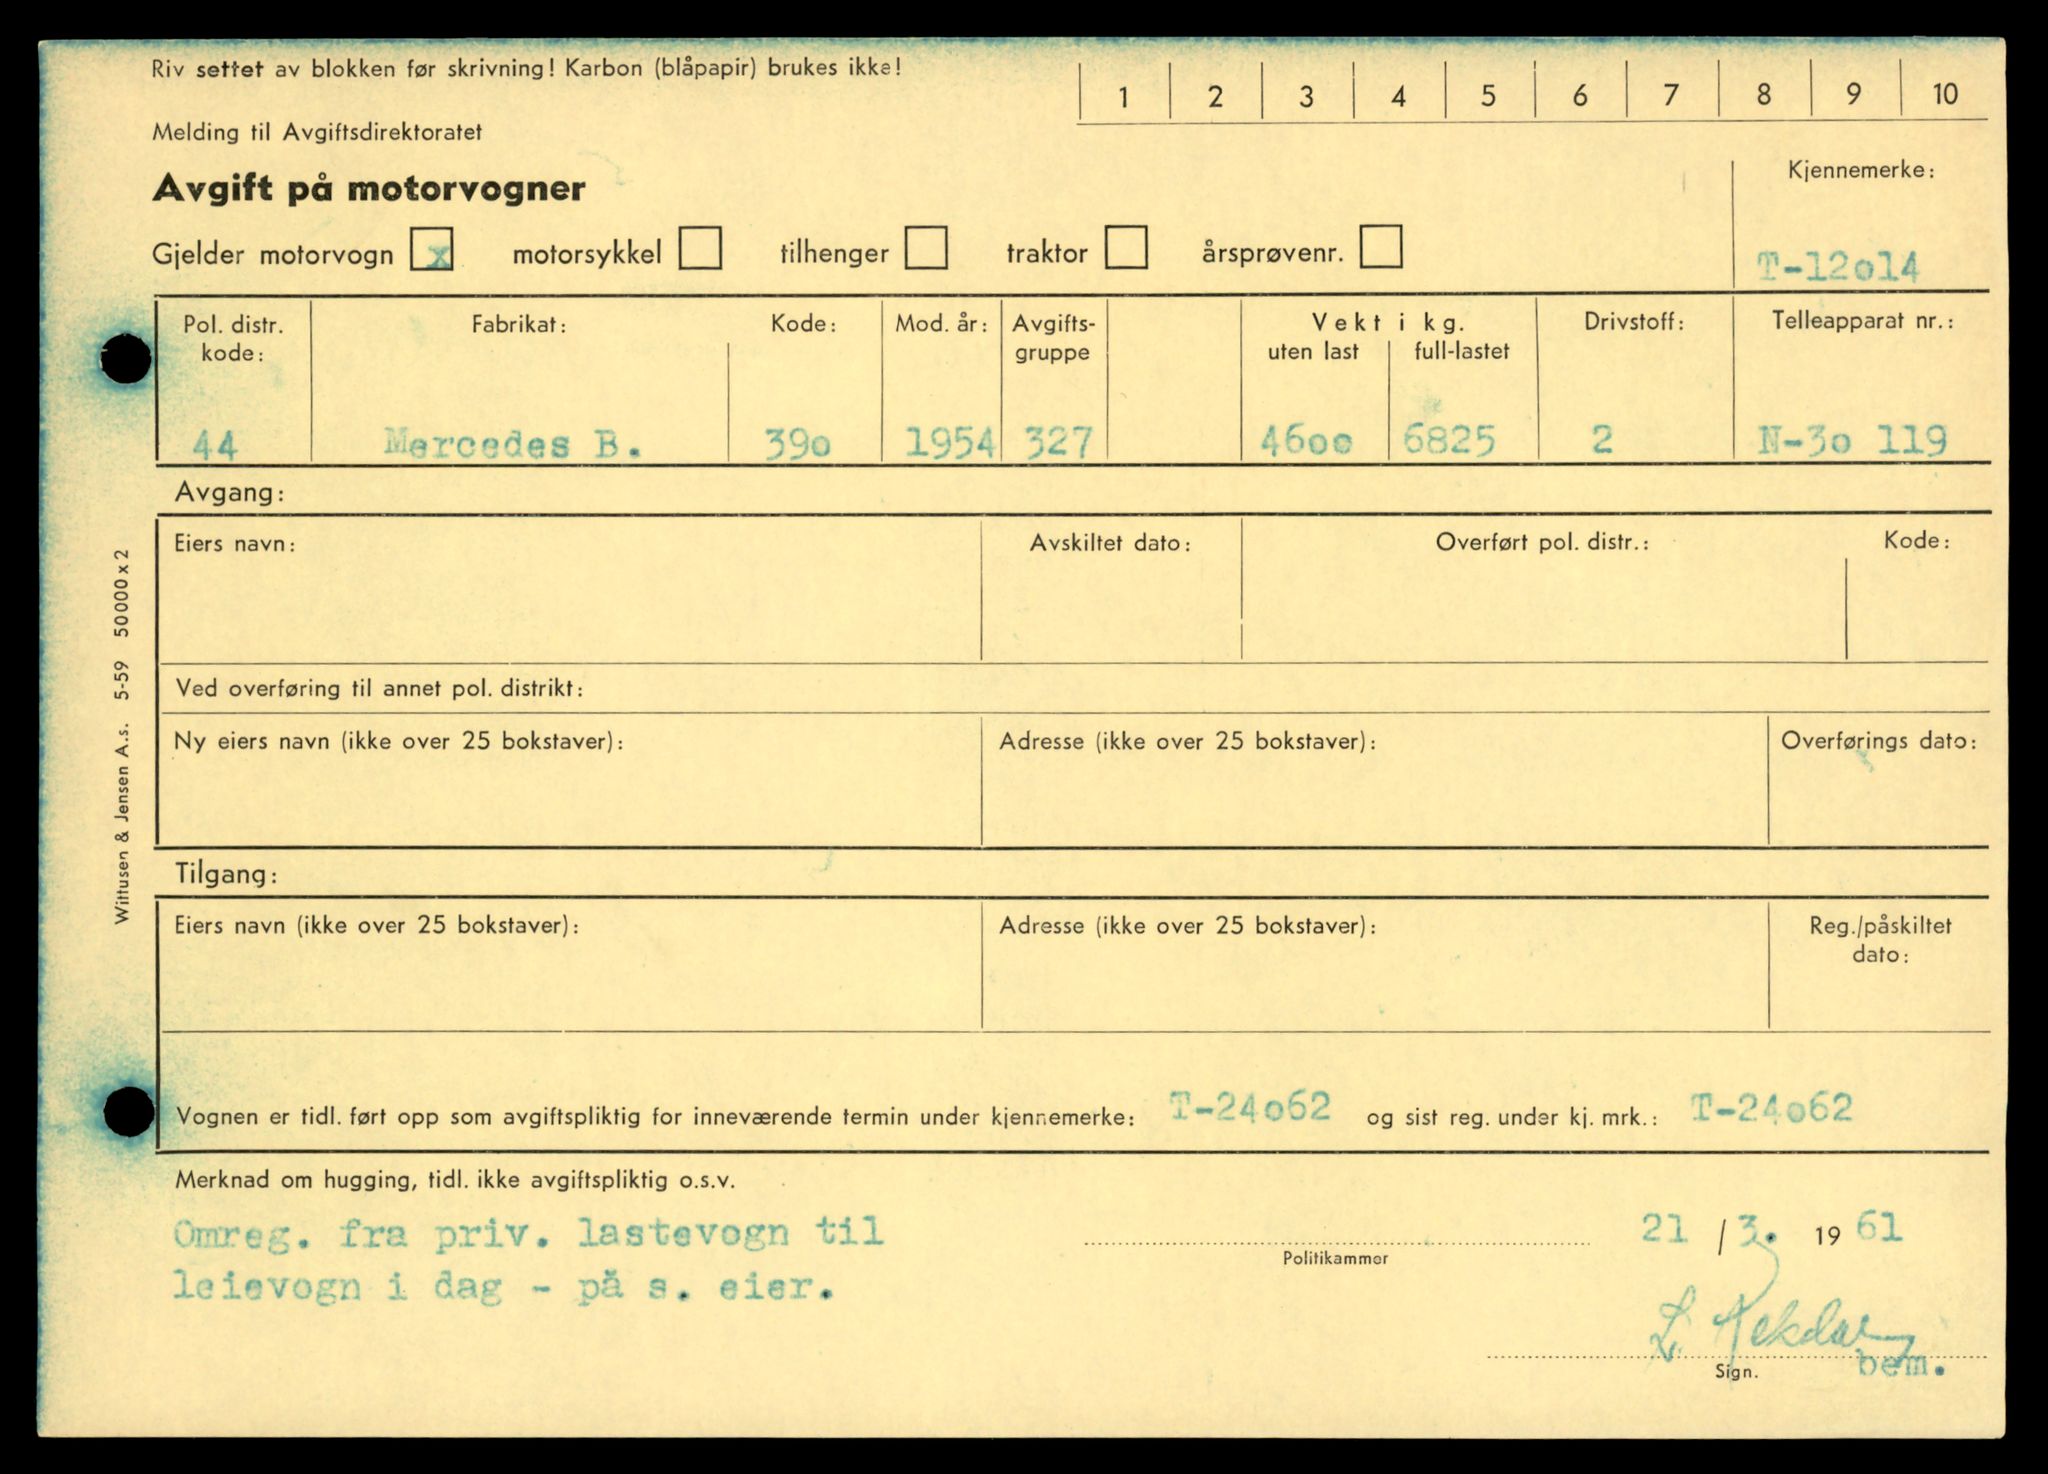 Riv settet av blokken før skrivning! Karbon (blåpapir) brukes ikke!
1 2 3 4 5 6 7 8 9 10
Melding til Avgiftsdirektoratet
Avgift på motorvogner
Kjennemerke:
Gjelder motorvogn x motorsykkel tilhenger traktor årsprøvenr.
T-12o14
Pol. distr. kode: Fabrikat: Kode: Mod. år: Avgifts-gruppe Vekt i kg. uten last full-lastet Drivstoff: Telleapparat nr.:
44 Mercedes B. 39o 1954 327 46oo 6825 2 N-3o 119
Avgang:
Eiers navn: Avskiltet dato: Overført pol. distr.: Kode:
Ved overføring til annet pol. distrikt:
Ny eiers navn (ikke over 25 bokstaver): Adresse (ikke over 25 bokstaver): Overførings dato:
Tilgang:
Eiers navn (ikke over 25 bokstaver): Adresse (ikke over 25 bokstaver): Reg./påskiltet dato:
Vognen er tidl. ført opp som avgiftspliktig for inneværende termin under kjennemerke: T-24o62 og sist reg. under kj. mrk.: T-24o62
Merknad om hugging, tidl. ikke avgiftspliktig o.s.v.
Omreg. fra priv. lastevogn til
leievogn i dag - på s. eier.
Politikammer
21 / 3. 19 61
L.
Sign. bem.
Wittusen & Jensen A.s. 5-59 50000 x 2